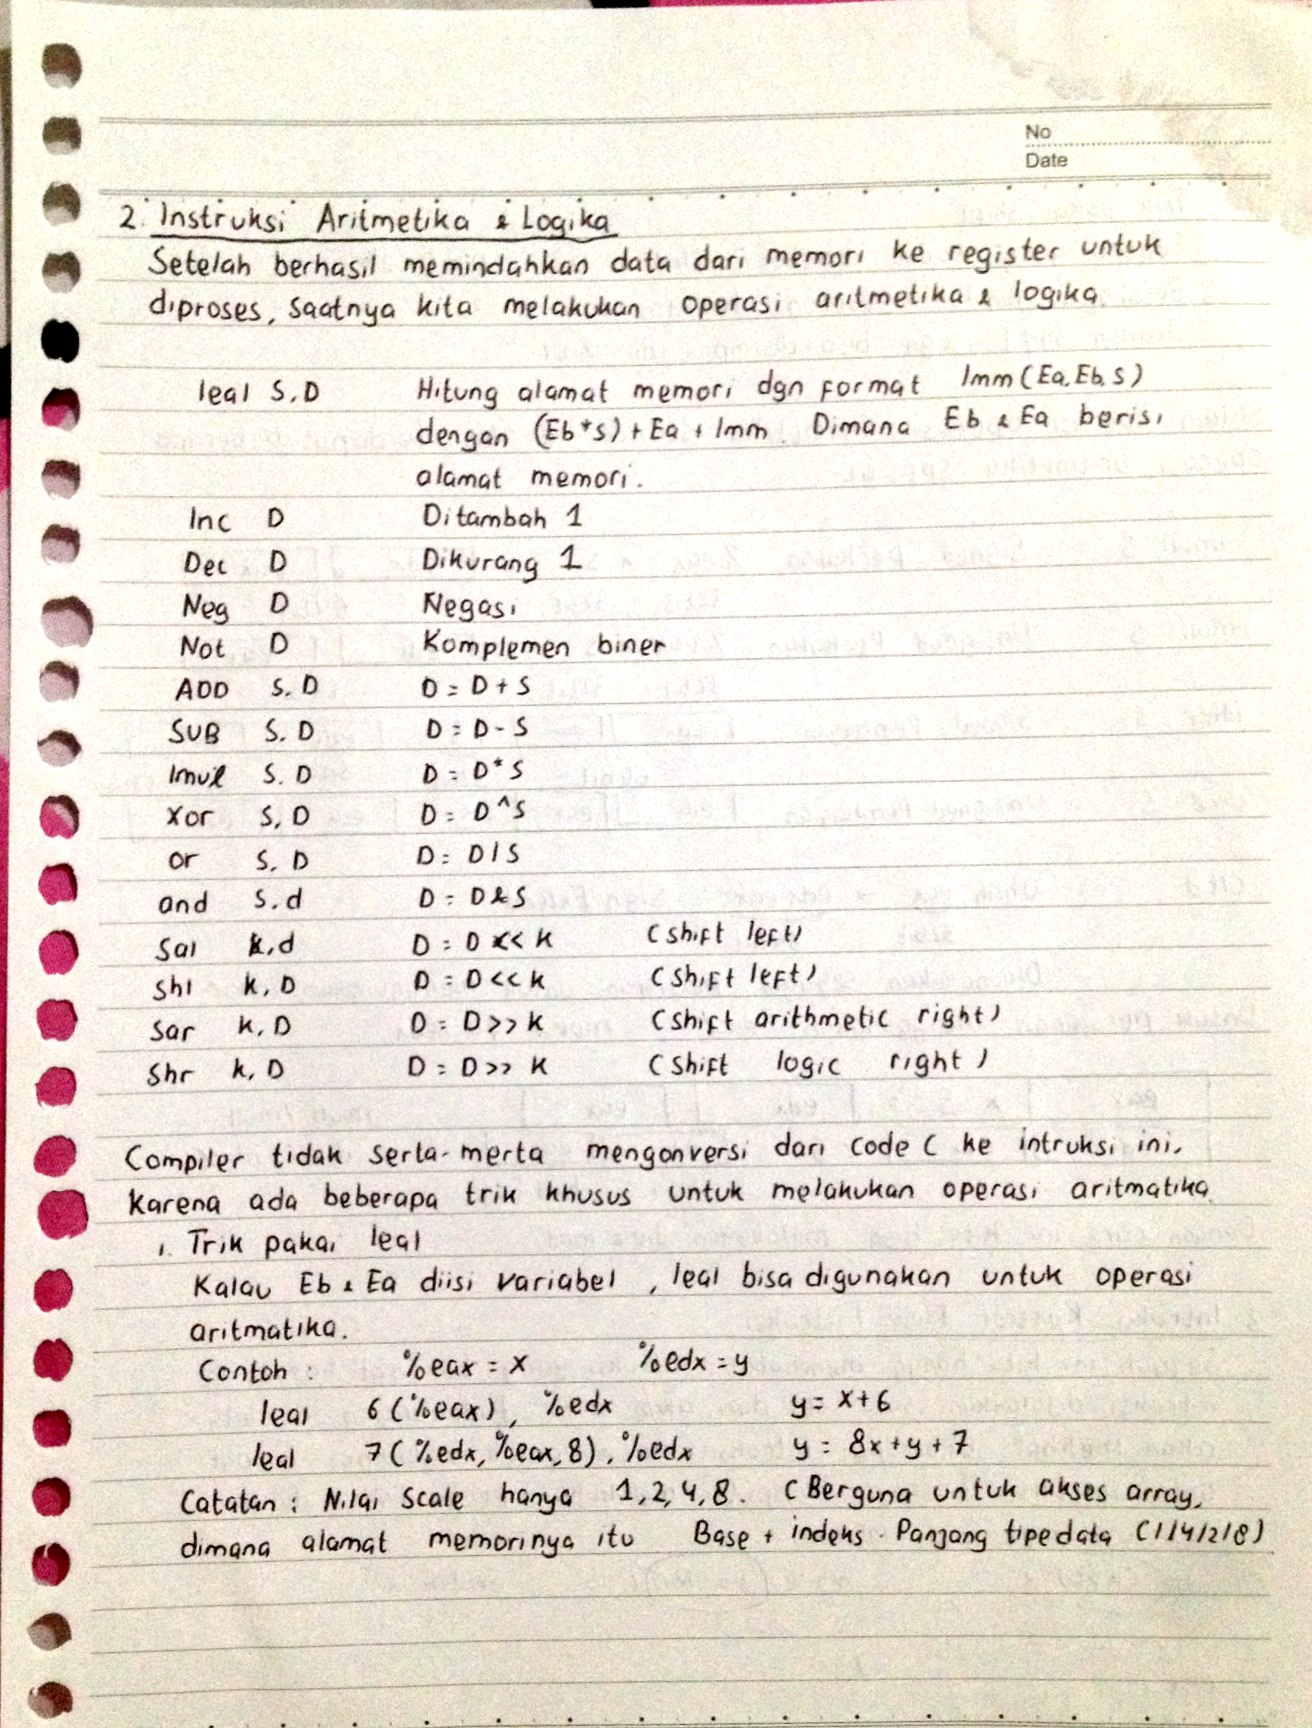 No
Date
2. Instruksi Aritmetika & Logika
Setelah berhasil memindahkan data dari memori ke register untuk
diproses, saatnya kita melakukan operasi aritmetika & logika.
leal S,D Hitung alamat memori dgn format Imm(Ea,Eb,s)
dengan (Eb*s)+Ea+Imm. Dimana Eb & Ea berisi
alamat memori.
Inc D Ditambah 1
Dec D Dikurang 1
Neg D Negasi
Not D Komplemen biner
ADD S,D D = D+S
SUB S,D D = D-S
Imul S,D D = D*S
Xor S,D D = D^S
or S,D D = D|S
and S,d D = D&S
Sal k,d D = D<<k (shift left)
Shl k,D D = D<<k (shift left)
Sar k,D D = D>>k (shift arithmetic right)
Shr k,D D = D>>k (shift logic right)
Compiler tidak serta-merta mengonversi dari code C ke intruksi ini,
karena ada beberapa trik khusus untuk melakukan operasi aritmatika.
1. Trik pakai leal
Kalau Eb & Ea diisi variabel, leal bisa digunakan untuk operasi
aritmatika.
Contoh : %eax = x %edx = y
leal 6(%eax), %edx y = x+6
leal 7(%edx,%eax,8), %edx y = 8x+y+7
Catatan : Nilai Scale hanya 1,2,4,8. (Berguna untuk akses array,
dimana alamat memorinya itu Base + indeks . Panjang tipe data (1/4/2/8)